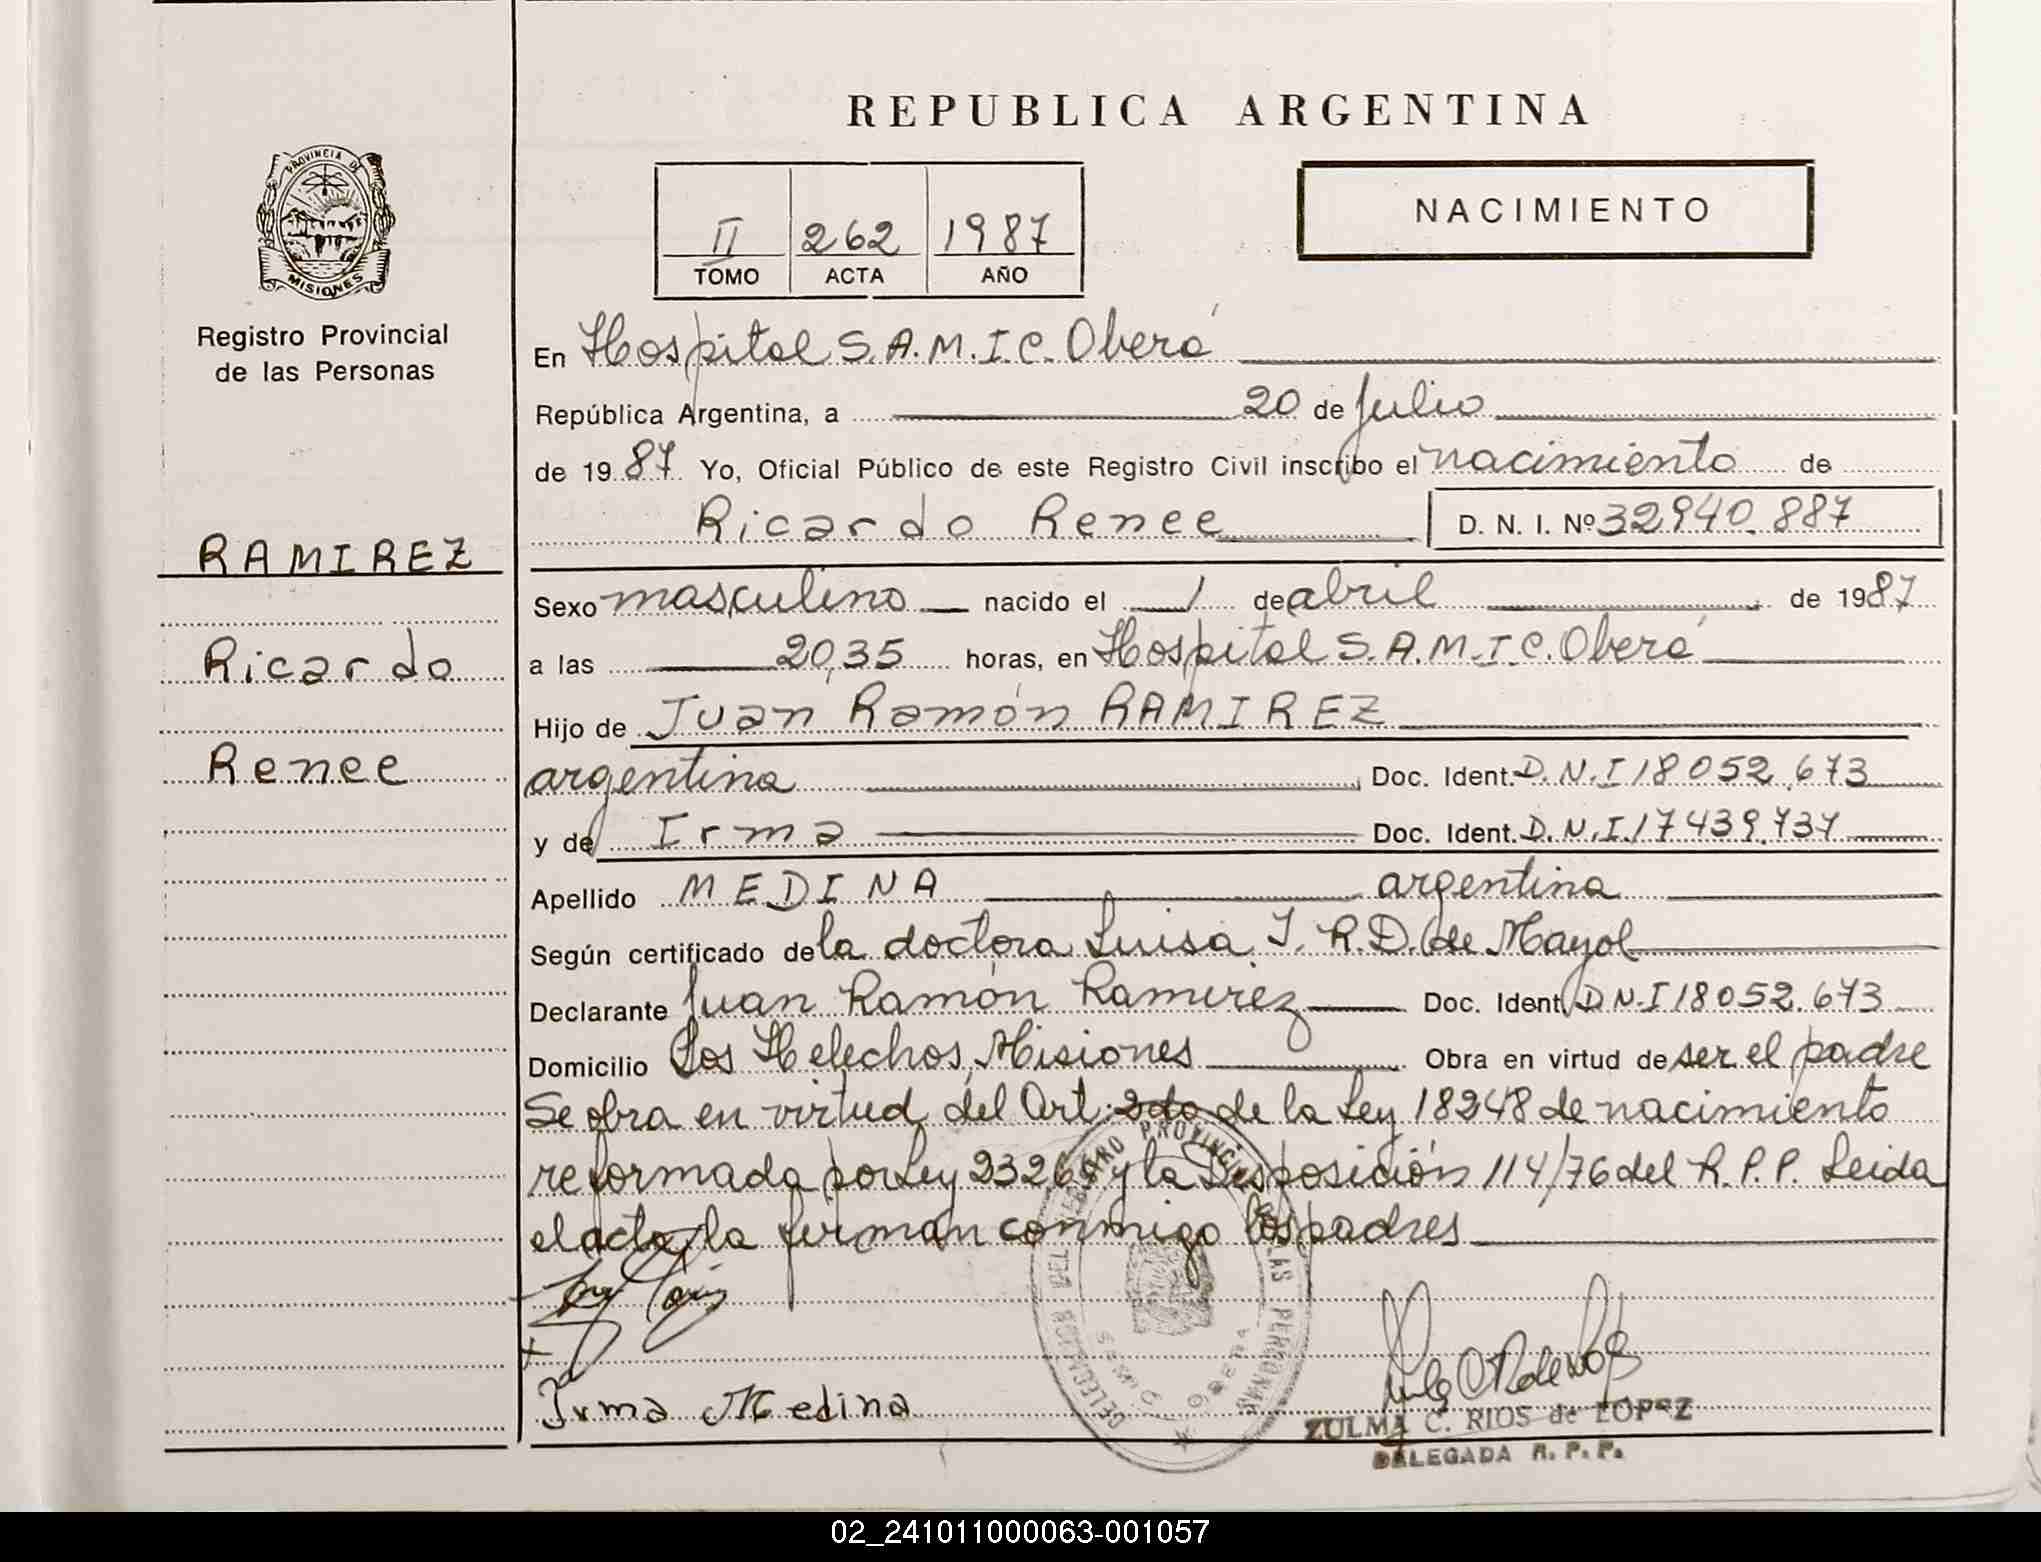 REPUBLICA ARGENTINA
PROVINCIA DE
MISIONES
Registro Provincial
de las Personas
RAMIREZ
Ricardo
Renee
II 262 1987
TOMO ACTA AÑO
NACIMIENTO
En Hospital S.A.M.I.C. Oberá
República Argentina, a 20 de Julio
de 1987 Yo, Oficial Público de este Registro Civil inscribo el nacimiento de
Ricardo Renee D. N. I. Nº 32940.887
Sexo masculino nacido el 1 de abril de 1987
a las 20,35 horas, en Hospital S.A.M.I.C. Oberá
Hijo de Juan Ramón RAMIREZ
argentina Doc. Ident. D.N.I 18052.673
y de Irma Doc. Ident. D.N.I. 17439.737
Apellido MEDINA argentina
Según certificado de la doctora Luisa J. R.D. de Mayol
Declarante Juan Ramón Ramirez Doc. Ident. D.N.I 18052.673
Domicilio Los Helechos, Misiones Obra en virtud de ser el padre
Se obra en virtud del Art. 2do de la Ley 18248 de nacimiento
reformada por Ley 23264 y la Disposición 114/76 del R.P.P. Leida
el acta, la firman conmigo los padres
Irma Medina
DELEGACION DEL REGISTRO PROVINCIAL DE LAS PERSONAS
OBERA
ZULMA C. RIOS de LOPEZ
DELEGADA R. P. P.
02_241011000063-001057